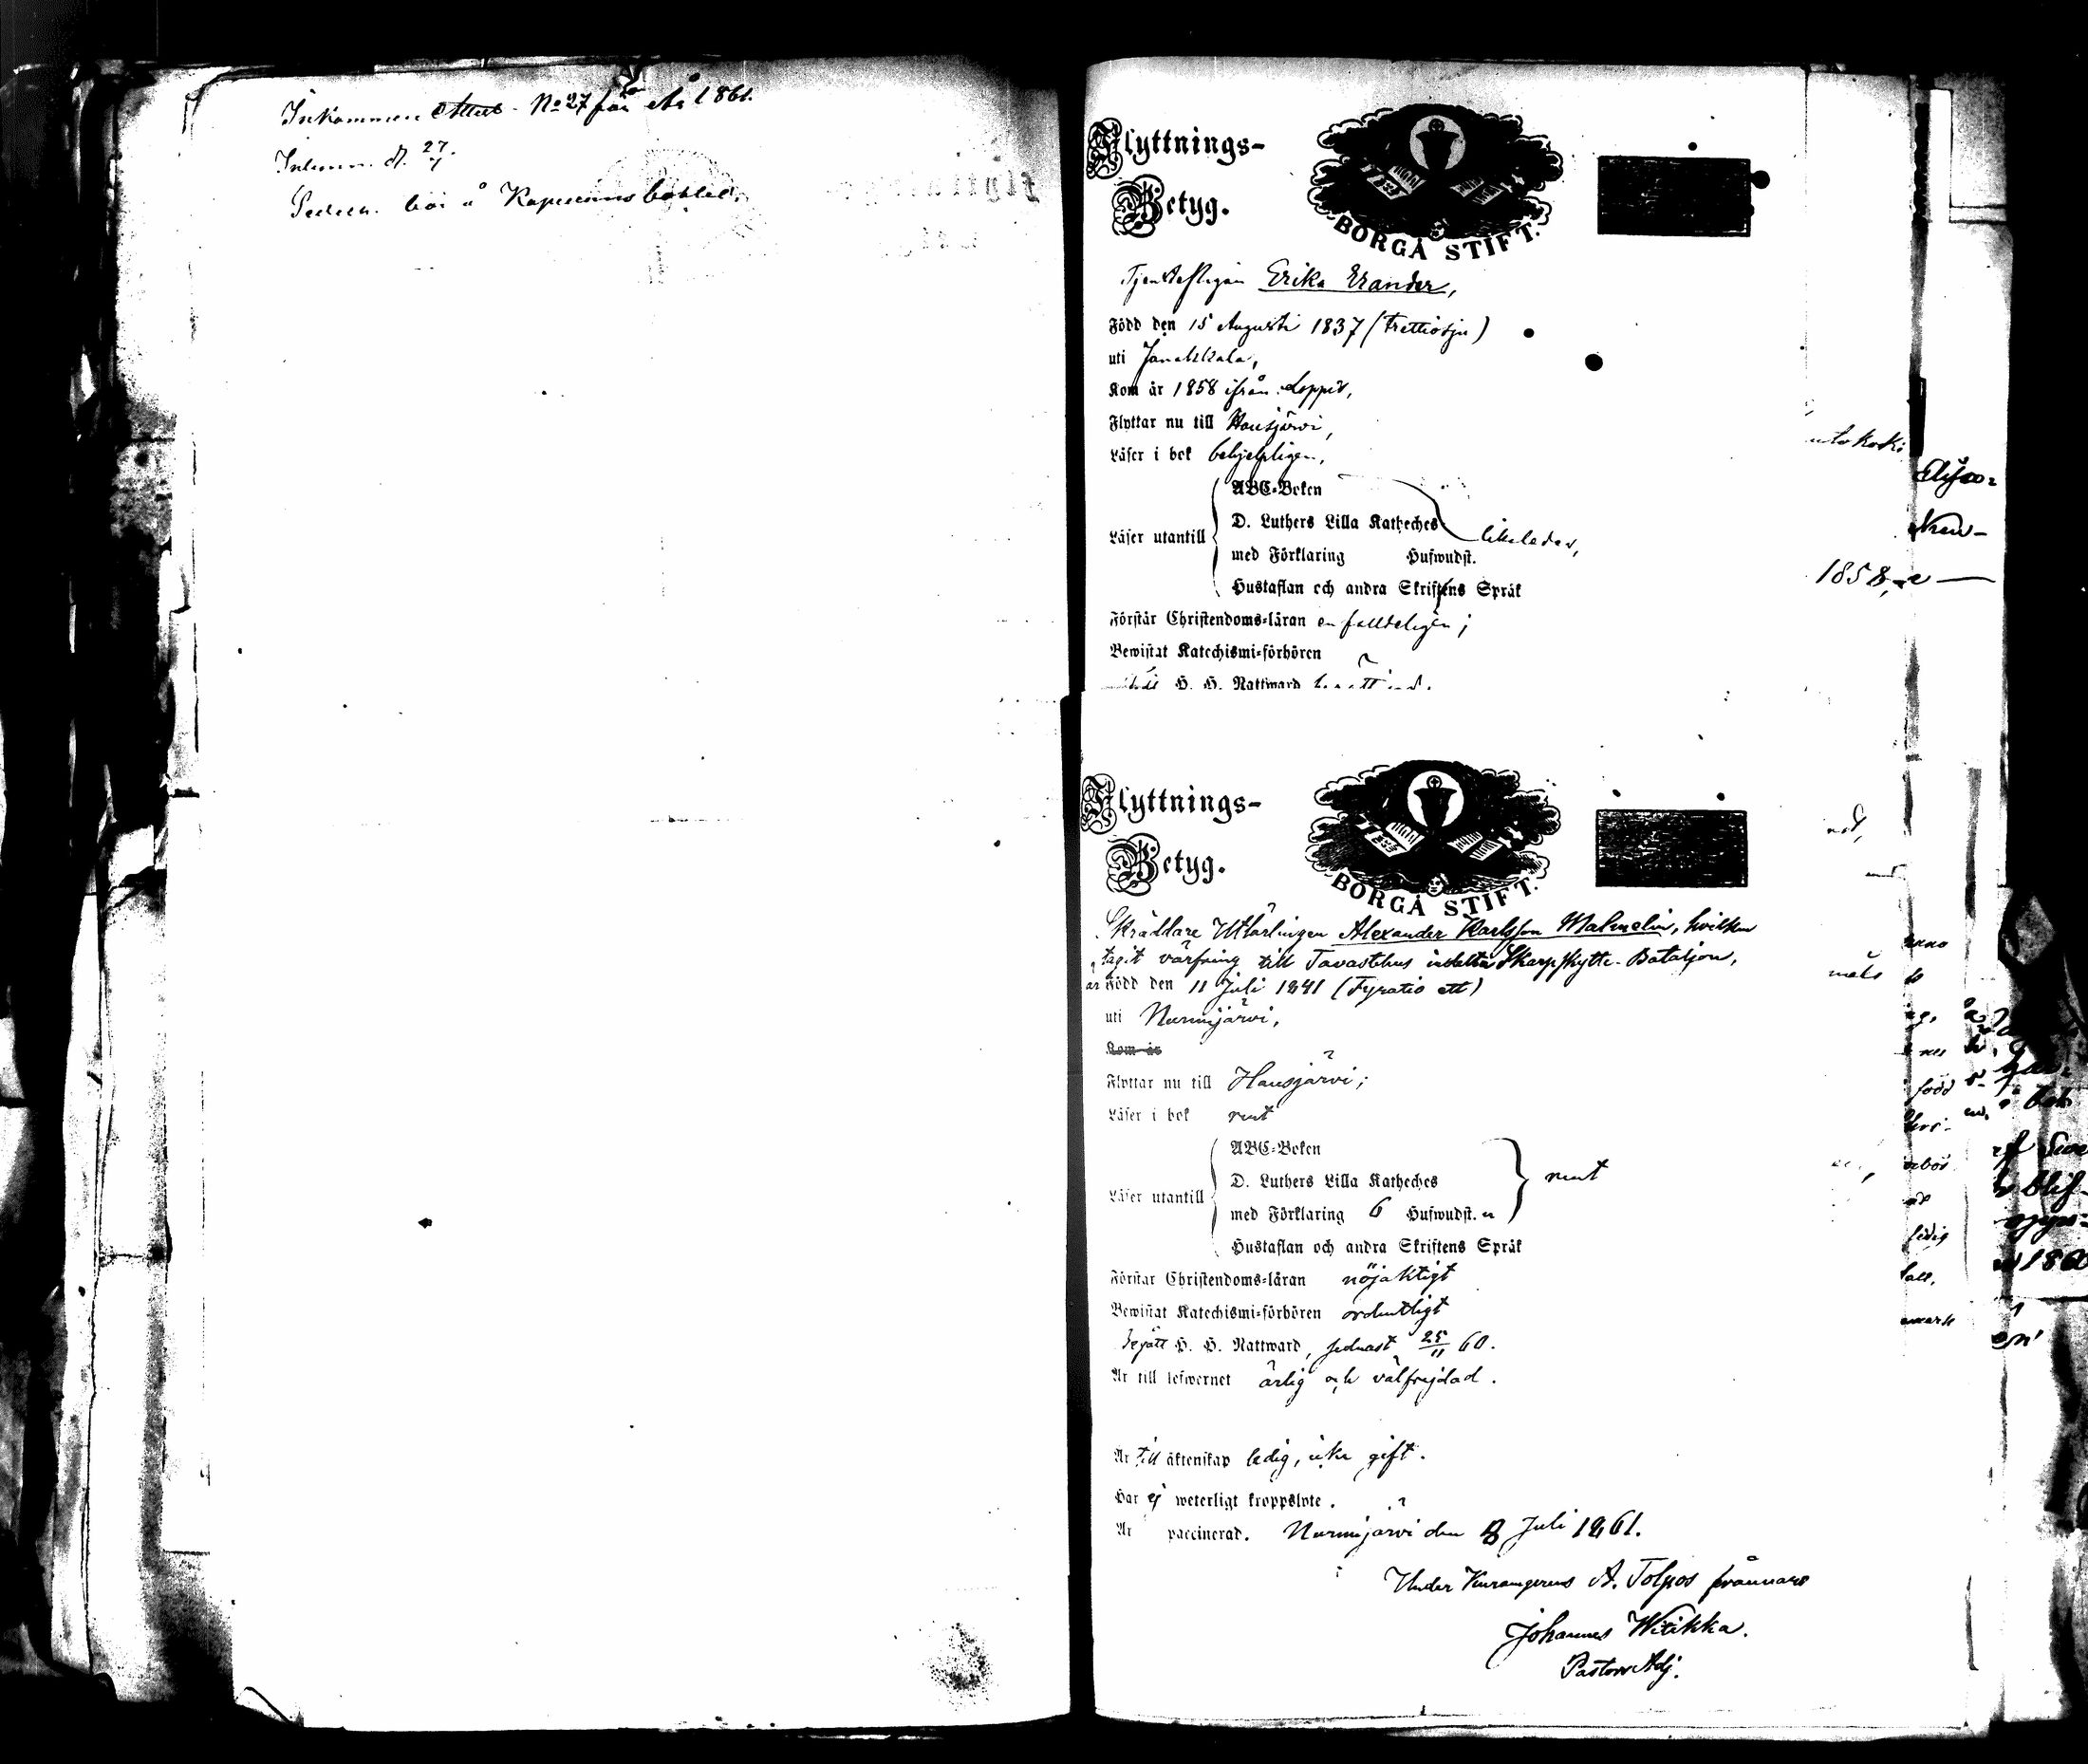 Inkommen Attest No 27 för År 1861.
Inkom. d. 27/7.
bör å
Flyttnings-
Betyg.
BORGÅ STIFT.
Tjenstepigan Erika Erander,
Född den 15 Augusti 1837 (trettiosju)
uti Janakkala,
Kom år 1858 ifrån Loppis,
Flyttar nu till Hausjärvi,
Läser i bok behjelpligen,
ABC-Boken
D. Luthers Lilla Katheches
Läser utantill likeledes,
med Förklaring Hufwudst.
Hustaflan och andra Skriftens Språk
Förstår Christendoms-läran enfalldeligen;
Bewistat Katechismi-förhören
H. H. Nattward
Flyttnings-
Betyg.
BORGÅ STIFT.
Skräddare Utlärlingen Alexander Karlsson Malmelin, hvilken
tagit värfning till Tavastehus indelta Skarpskytte-Bataljon,
är Född den 11 Juli 1841 (Fyratio ett)
uti Nurmijärvi,
Kom år
Flyttar nu till Hausjärvi;
Läser i bok rent
ABC-Boken
D. Luthers Lilla Katheches rent
Läser utantill
med Förklaring 6 Hufwudst.
Hustaflan och andra Skriftens Språk
Förstår Christendoms-läran nöjaktigt
Bewistat Katechismi-förhören ordentligt
Begått H. H. Nattward, sednast 25/11 60.
Är till lefwernet ärlig och välfrejdad.
Är till äktenskap ledig, icke gift.
Har ej weterligt kroppslyte.
Är vaccinerad. Nurmijärvi den 8 Juli 1861.
A. Tolpos frånvaro
Johannes Witikka.
Pastors Adj.
1858,
född
ledig
1860